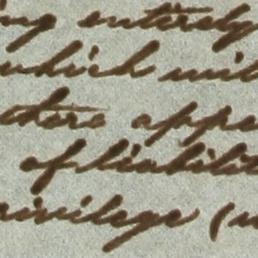 ing entirely
which will
there appe
of liabilit
rivilege (